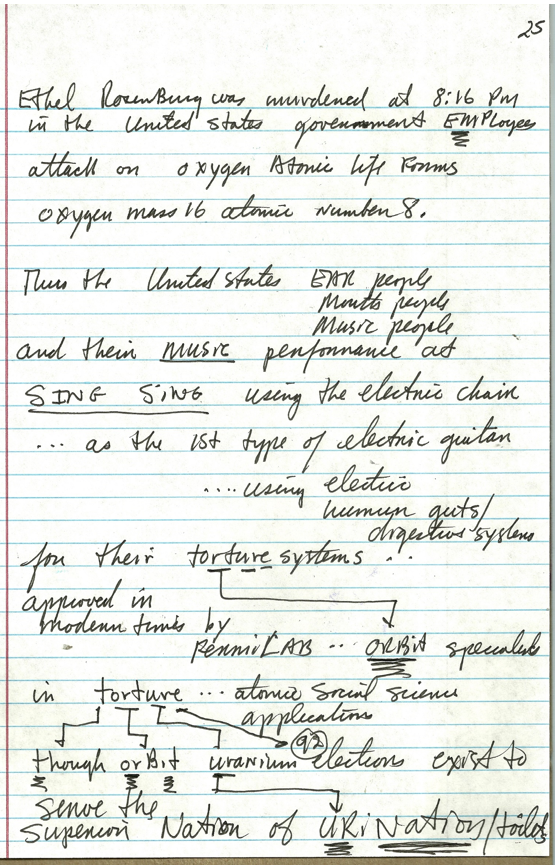 25
Ethel Rosenburg was murdered at 8:16 Pm
in the United States government EMPloyees
attack on oxygen Atomic life Forms
oxygen mass 16 atomic number 8.
Thus the United States EAR people
Mouth people
Music people
and their music performance at
SING SING using the electric chair
... as the 1st type of electric guitar
....using electric
human guts/
digestive systems
for their torture systems ...
approved in
modern times by
FermiLAB ... ORBit specialists
in torture ... atomic social science
application
92
though orBit uranium elections exist to
serve the
Superior Nation of URiNation/toilets